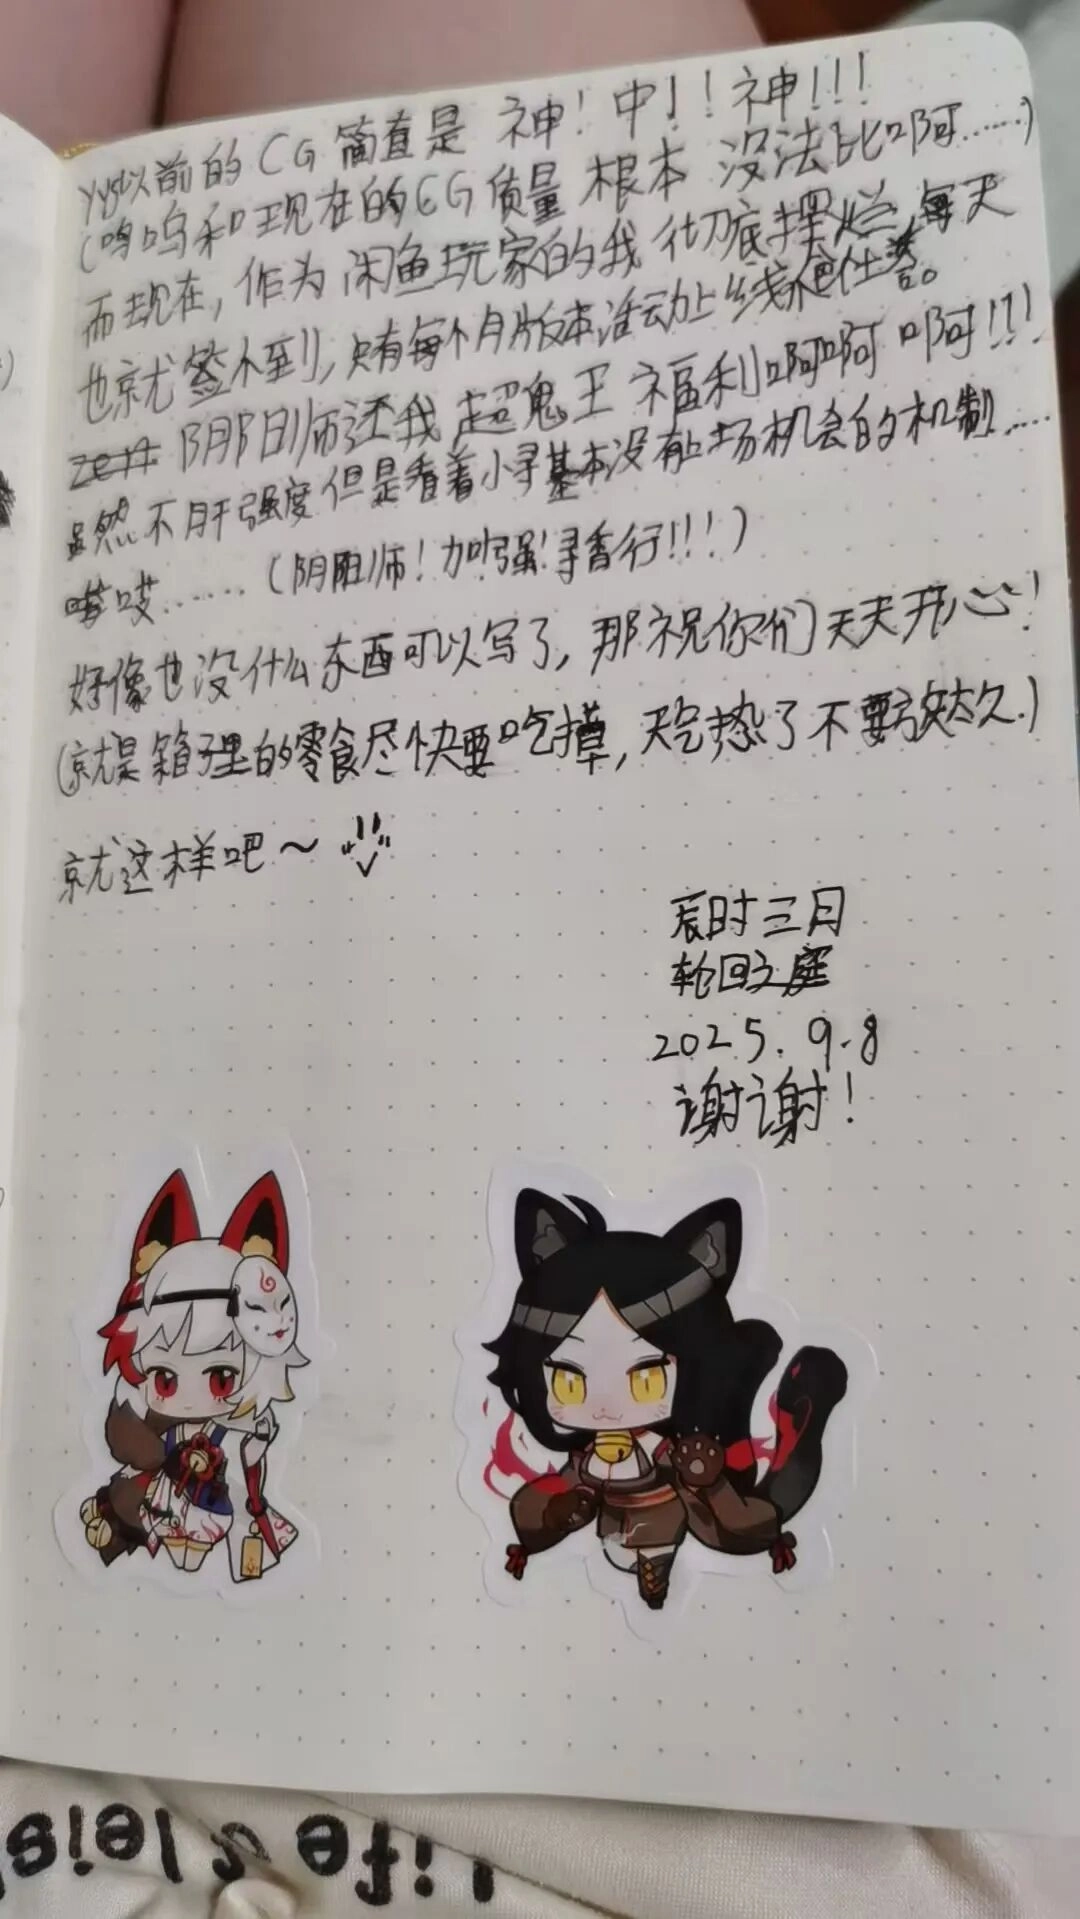 yys以前的CG简直是 神！中！！神！！！
（呜呜和现在的CG质量 根本 没法比啊……）
而现在，作为 闲鱼玩家的我 彻底摆烂，每天
也就签个到，只有每个月版本活动上线爆仕签。
阴阳师还我 超鬼王 福利啊啊啊！！！
虽然不肝强度但是看着小寻基本没有上场机会的机制……
哎哎……（阴阳师！加强！寻香行！！！）
好像也没什么东西可以写了，那祝你们天天开心！
（就是箱子里的零食尽快要吃掉，天气热了不要放太久。）
就这样吧～
辰时三月
轮回之庭
2025.9.8
谢谢！
Life's leis